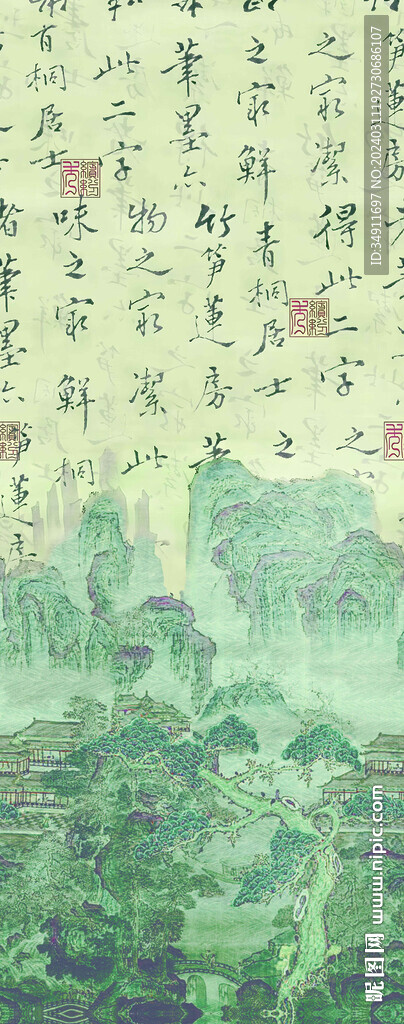 笋蓮房
之㝡潔得此二字之
之㝡鮮
青桐居士之
筆墨亦
竹笋蓮房
此二字
物之㝡潔此
青桐居士
味之㝡鮮桐
者筆墨亦
笋蓮房
ID:34911697 NO:20240311192730686107
昵图网 www.nipic.com